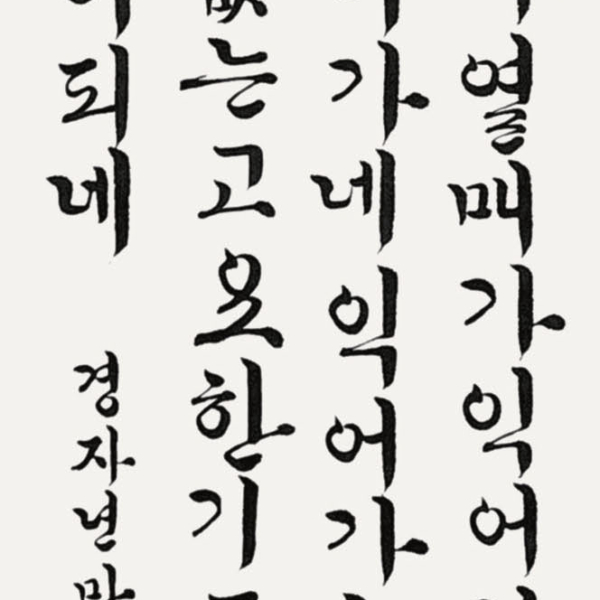 열매가익어
가네익어가
는고요한기
되네
경자년